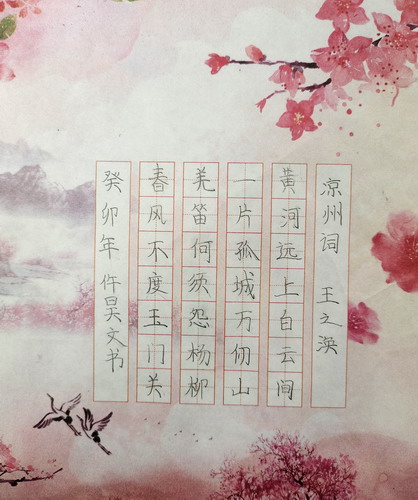 凉州词 王之涣
黄河远上白云间
一片孤城万仞山
羌笛何须怨杨柳
春风不度玉门关
癸卯年 仵昊文书